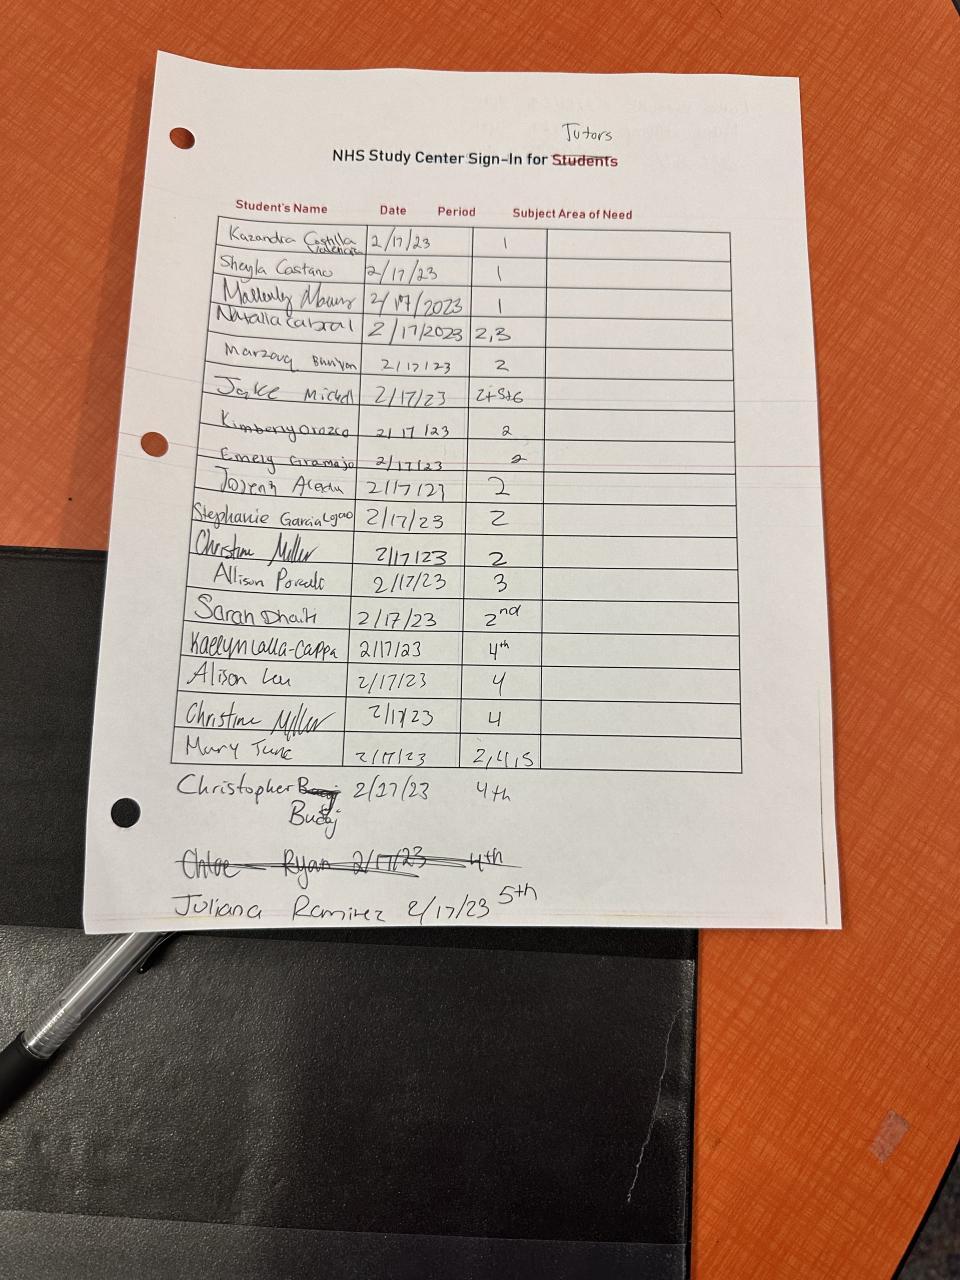 Tutors
NHS Study Center Sign-In for Students
Student's Name Date Period Subject Area of Need
Kazandra Costilla Valencia 2/17/23 1
Sheyla Castano 2/17/23 1
2/17/2023 1
Natalia Cabral 2/17/2023 2,3
Marzouq 2/17/23 2
Jake Michell 2/17/23 2+5+6
Kimberly Orozco 2/17/23 2
Emely Gramajo 2/17/23 2
2/17/23 2
Stephanie Garcia 2/17/23 2
Christine Miller 2/17/23 2
Allison 2/17/23 3
Sarah Dhaiti 2/17/23 2nd
Kaelyn Lalla-Cappa 2/17/23 4th
Alison Leu 2/17/23 4
Christine Miller 2/17/23 4
Mary Tunc 2/17/23 2,4,5
Christopher 2/27/23 4th
Budaj
Chloe Ryan 2/17/23 4th
Juliana Ramirez 2/17/23 5th